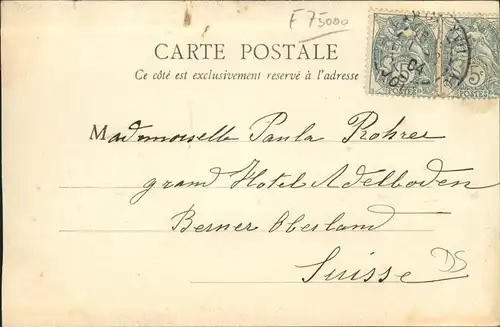 F 75000
CARTE POSTALE
Ce côté est exclusivement reservé à l'adresse
Mademoiselle Paula Rohrer
grand Hotel Adelboden
Berner Oberland
Suisse
DS
5c
POSTES